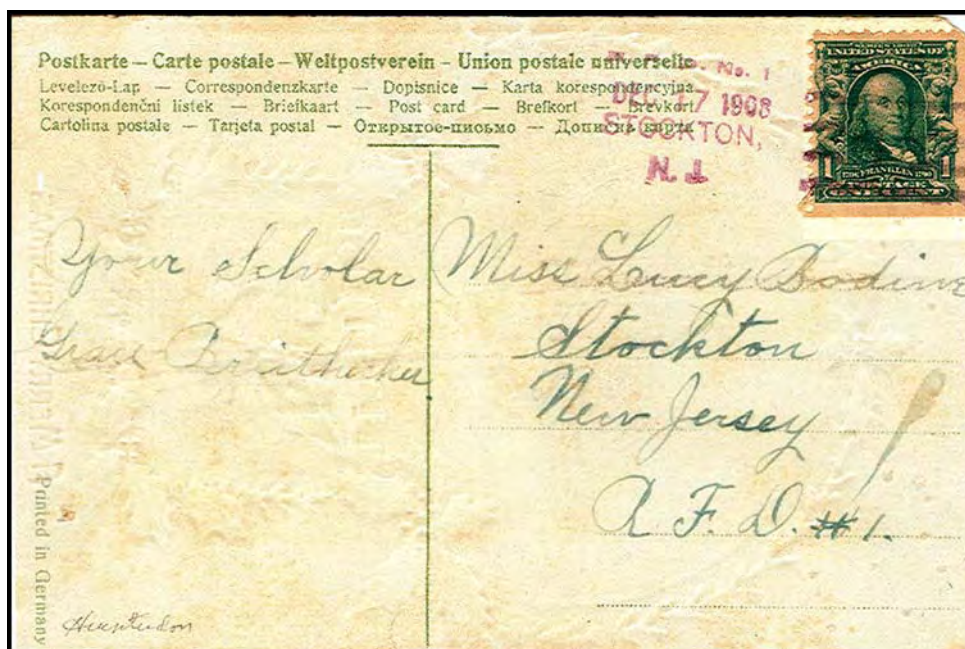 Postkarte – Carte postale – Weltpostverein - Union postale universelle
Levelező-Lap — Correspondenzkarte — Dopisnice — Karta korespondencyjna
Korespondenční lístek — Briefkaart — Post card — Brefkort — Brevkort
Cartolina postale — Tarjeta postal — Открытое-письмо — Дописна карта
No. 1
DEC 17 1908
STOCKTON,
N.J.
SERIES 1902
UNITED STATES OF
AMERICA
1 FRANKLIN 1
POSTAGE
ONE CENT
Your Scholar
Grace
Miss Lucy Bodine
Stockton
New Jersey
R. F. D. #1.
Printed in Germany